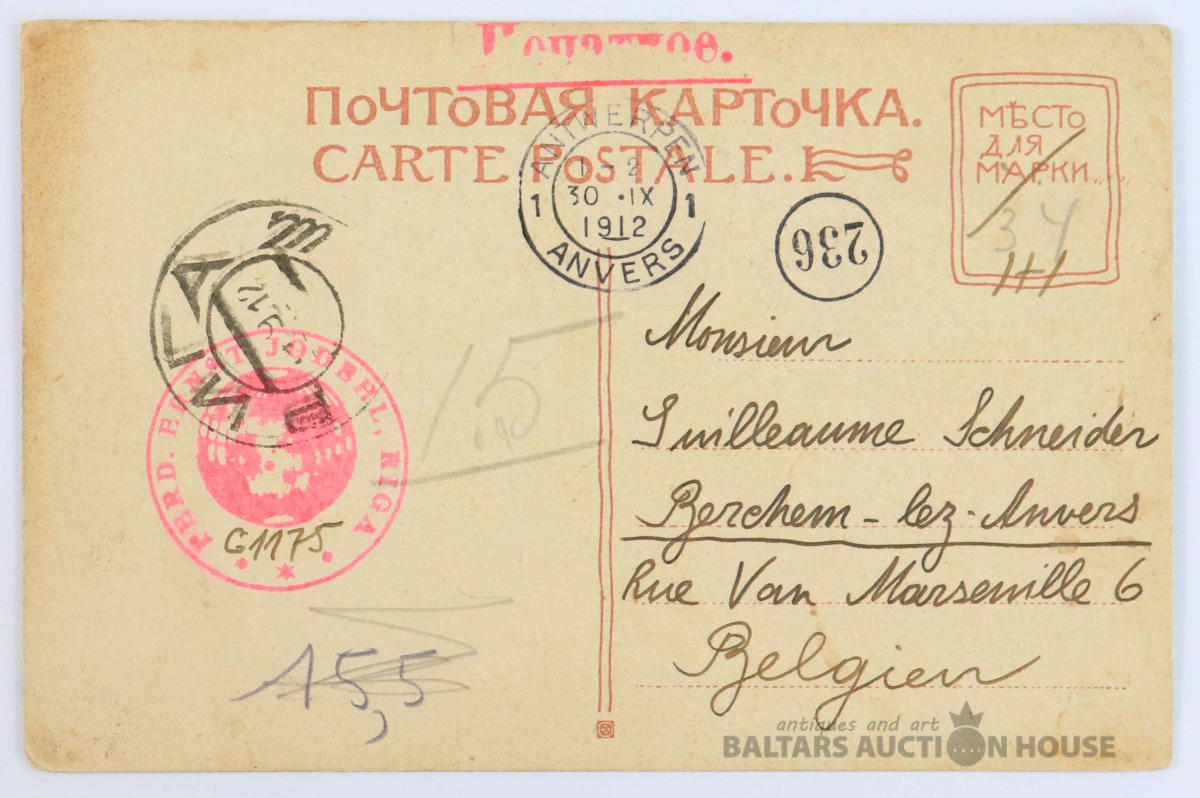 Печатное.
ПОЧТОВАЯ КАРТОЧКА.
CARTE POSTALE.
МѢСТО
ДЛЯ
МАРКИ
3 4
1+1
ANTWERPEN
1 - 2
30 • IX
1912
1 1
ANVERS
236
РИГА
9 12
FERD. ERNST JODEHL, RIGA
G1175
15
15,5
Monsieur
Guilleaume Schneider
Berchem - lez - Anvers
Rue Van Marsenille 6
Belgien
antiques and art
BALTARS AUCTION HOUSE